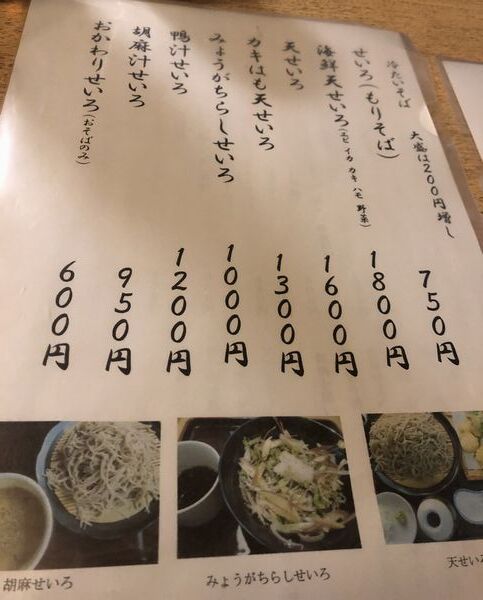 冷たいそば　大盛は200円増し
せいろ(もりそば)　750円
海鮮天せいろ(エビ イカ カキ ハモ 野菜)　1800円
天せいろ　1600円
カキはも天せいろ　1300円
みょうがちらしせいろ　1000円
鴨汁せいろ　1200円
胡麻汁せいろ　950円
おかわりせいろ(おそばのみ)　600円
胡麻せいろ
みょうがちらしせいろ
天せいろ